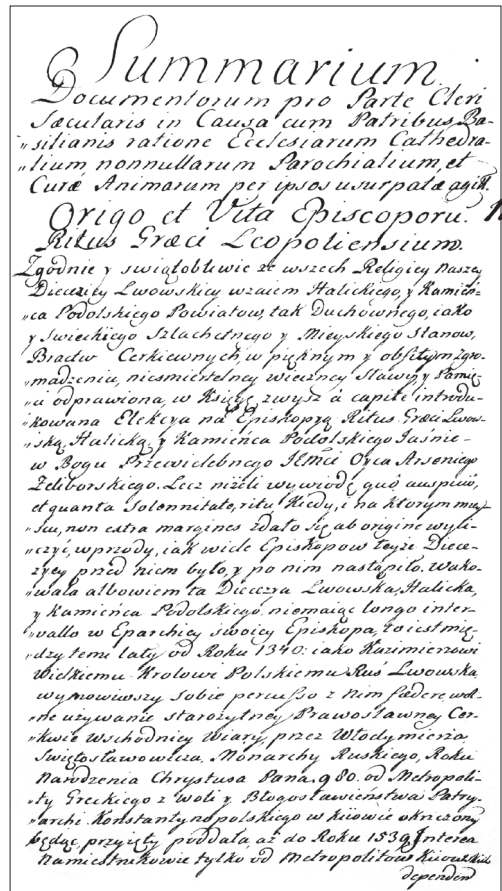 Summarium
Documentorum pro Parte Cleri
Sæcularis in Causa cum Patribus Ba-
„silianis ratione Ecclesiarum Cathedra-
„lium nonnullarum Parochialium, et
Curæ Animarum per ipsos usurpatæ agitt.
Origo et Vita Episcoporu. 1
Ritus Græci Leopoliensium.
Zgodnie y swiątobliwie ze wszech Religiey naszey
Dieceziey Lwowskiey wzaiem Halickiego, y Kamień-
„ca Podolskiego Powiatow, tak Duchownego, iako
y Swieckiego Szlachetnego y Mieyskiego Stanow,
Bractw Cerkiewnych, w pięknym y obfitym zgro-
„madzeniu, niesmiertelney wieczney Sławy, y Pamię-
„ci odprawiona, w Księgę zwysz a capite introdu-
„kowana Elekcya na Episkopyą Ritus Græci Lwow-
„ską, Halicką, y Kamieńca Podolskiego Jaśnie-
w Bogu Przewielebnego Jemci Oyca Arseniego
Żeliborskiego. Lecz niżeli wywiodę quo auspicio,
et quanta Solennitate, ritu kiedy, i na ktorym miey-
scu, non extra margines zdało się ab origine wyli-
„czyć, wprzody, iak wiele Episkopow teyże Diece-
zyey przed niem było, y po nim nastąpiło. Wako-
„wała albowiem ta Diecezya Lwowska, Halicka,
y Kamieńca Podolskiego niemaiąc longo inter-
„vallo w Eparchiey swoiey Episkopa, to iest mię-
„dzy temi laty od Roku 1340: iako Kazimierzowi
Wielkiemu Krolowi Polskiemu Ruś Lwowska
wymowiwszy sobie percusso z nim fædere, wol-
„ne używanie starożytney Prawosławney Cer-
„kwie Wschodniey Wiary, przez Włodymierza
Swiętosławowicza, Monarchy Ruskiego, Roku
Narodzenia Chrystusa Pana 980. od Metropoli-
„ty Greckiego z woli y Błogosławieństwa Patry-
„archi Konstantynopolskiego w Kiiowie okrzczony
będąc, przyięty poddała aż do Roku 1539. Interea
Namiestnikowie tylko od Metropolitow Kiiowskich
dependen